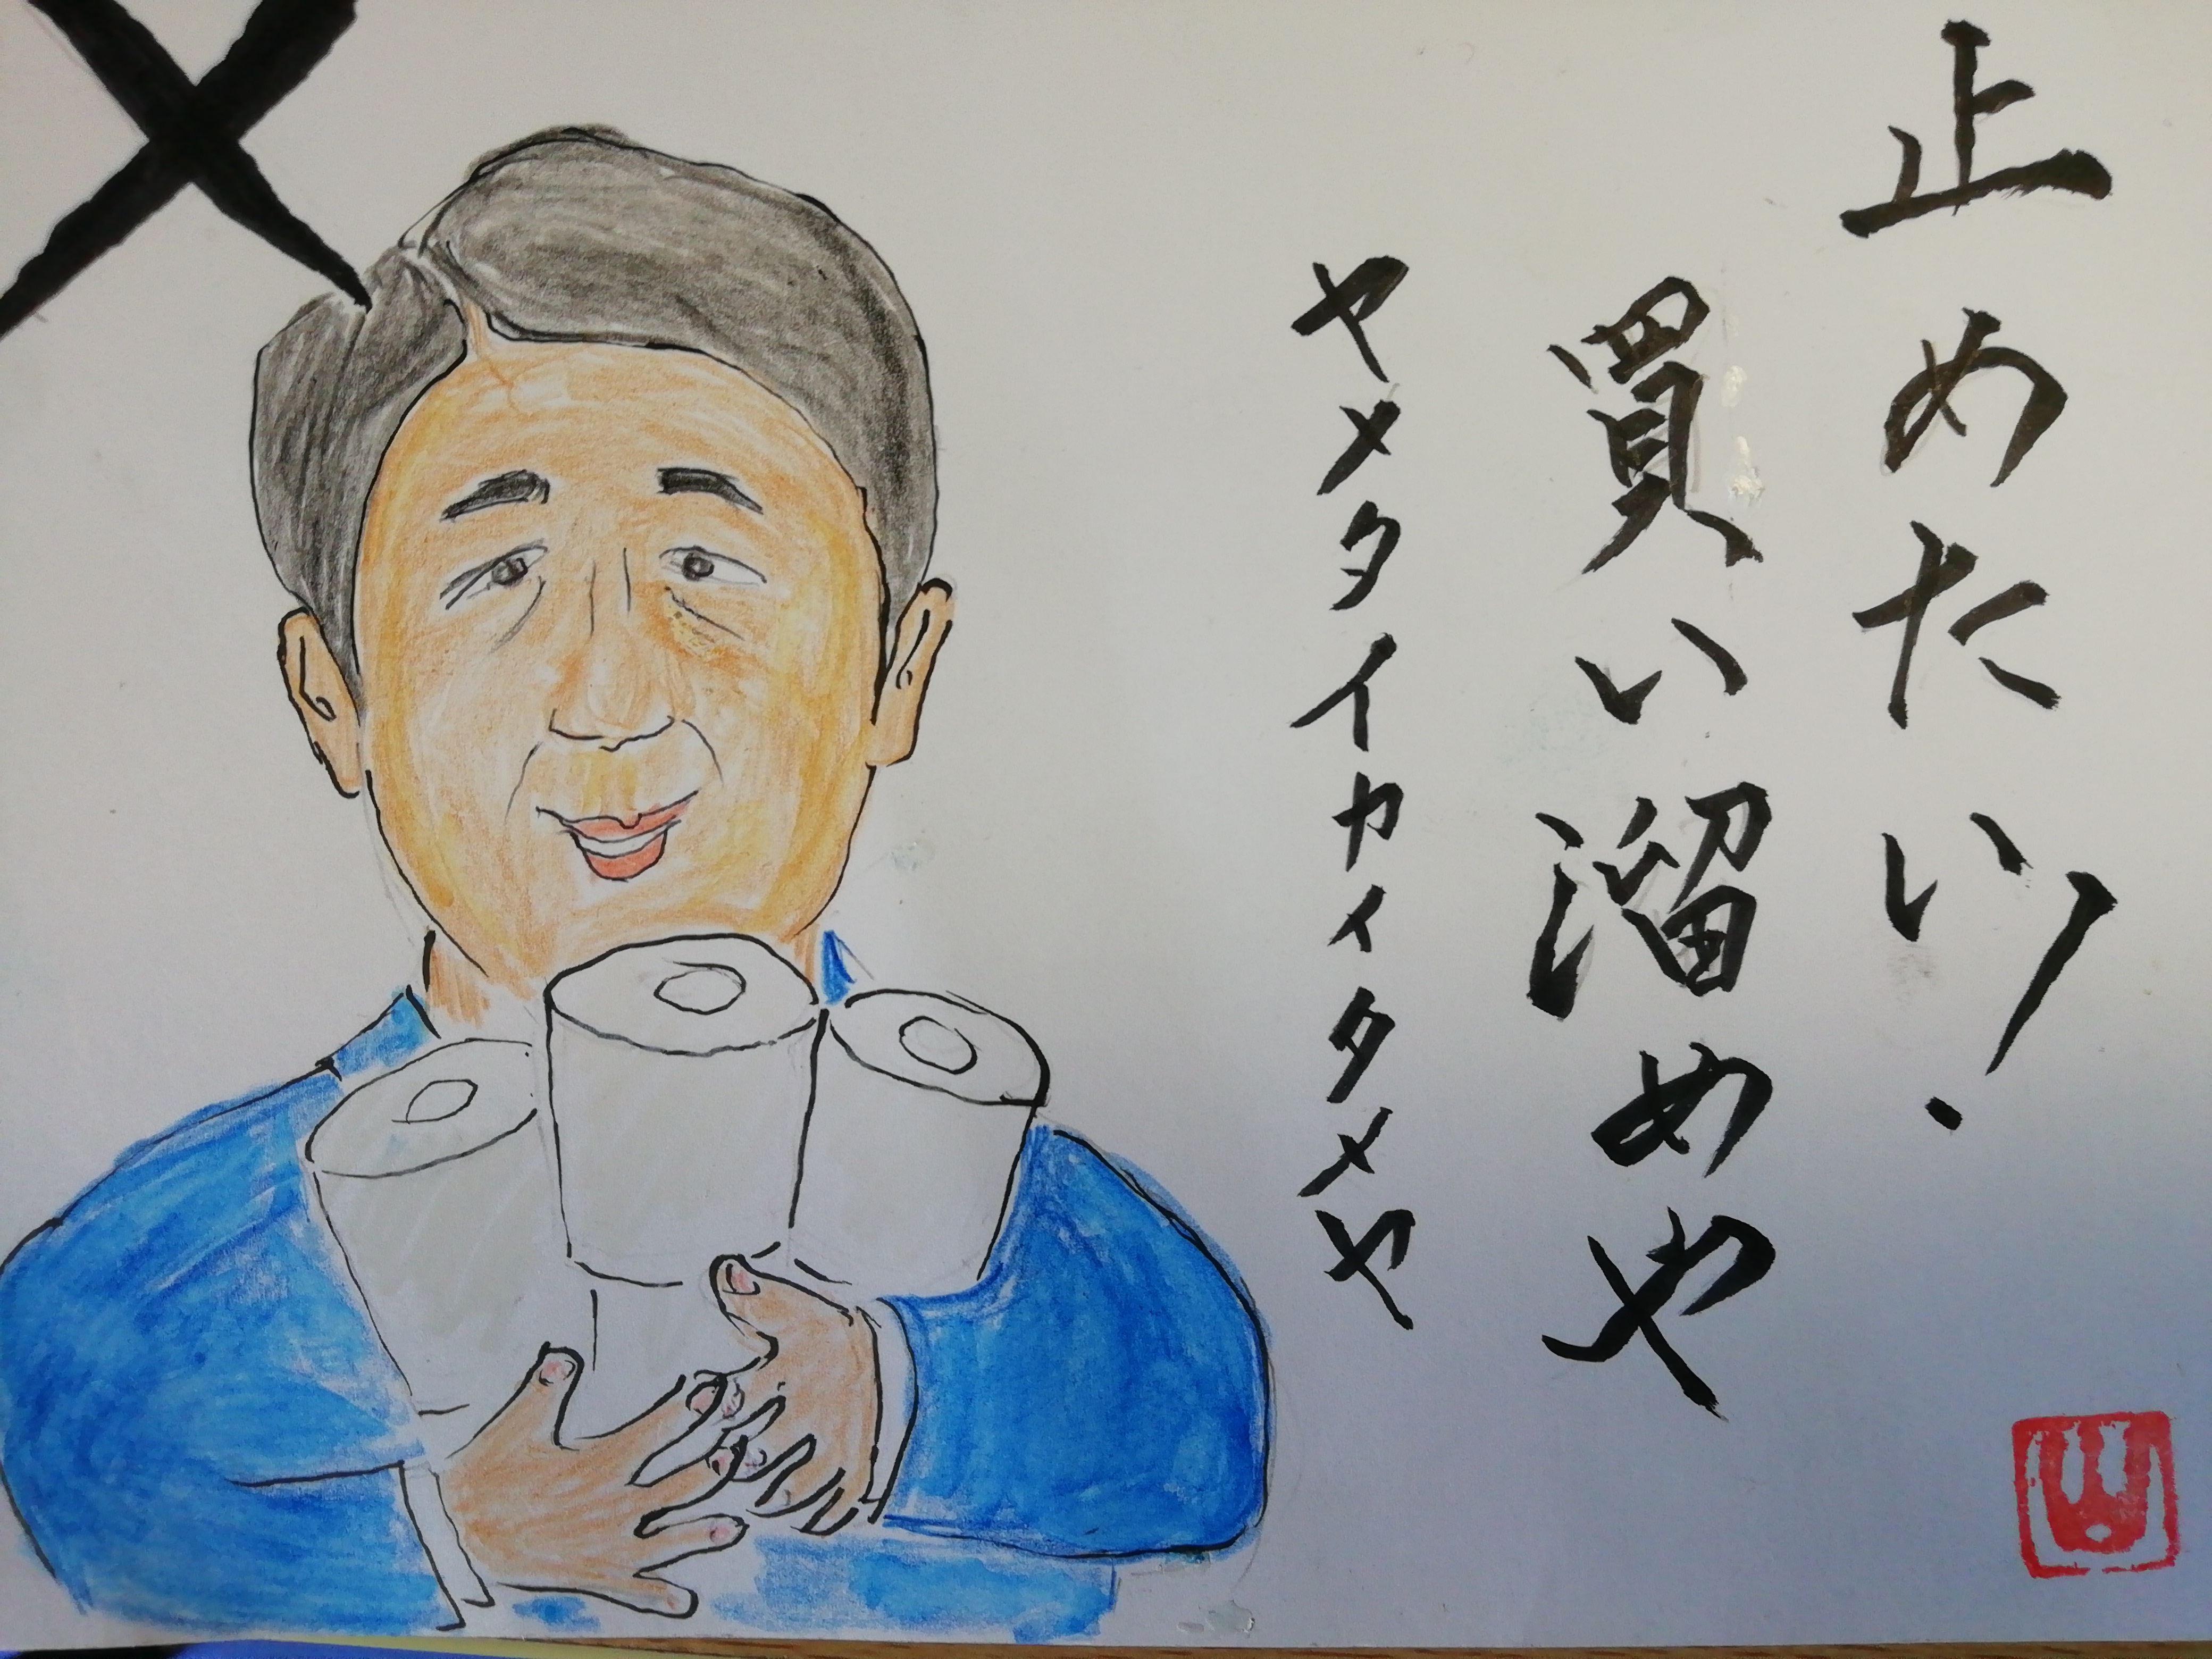 止めたい!
買い溜めや
ヤメタイカイタメヤ